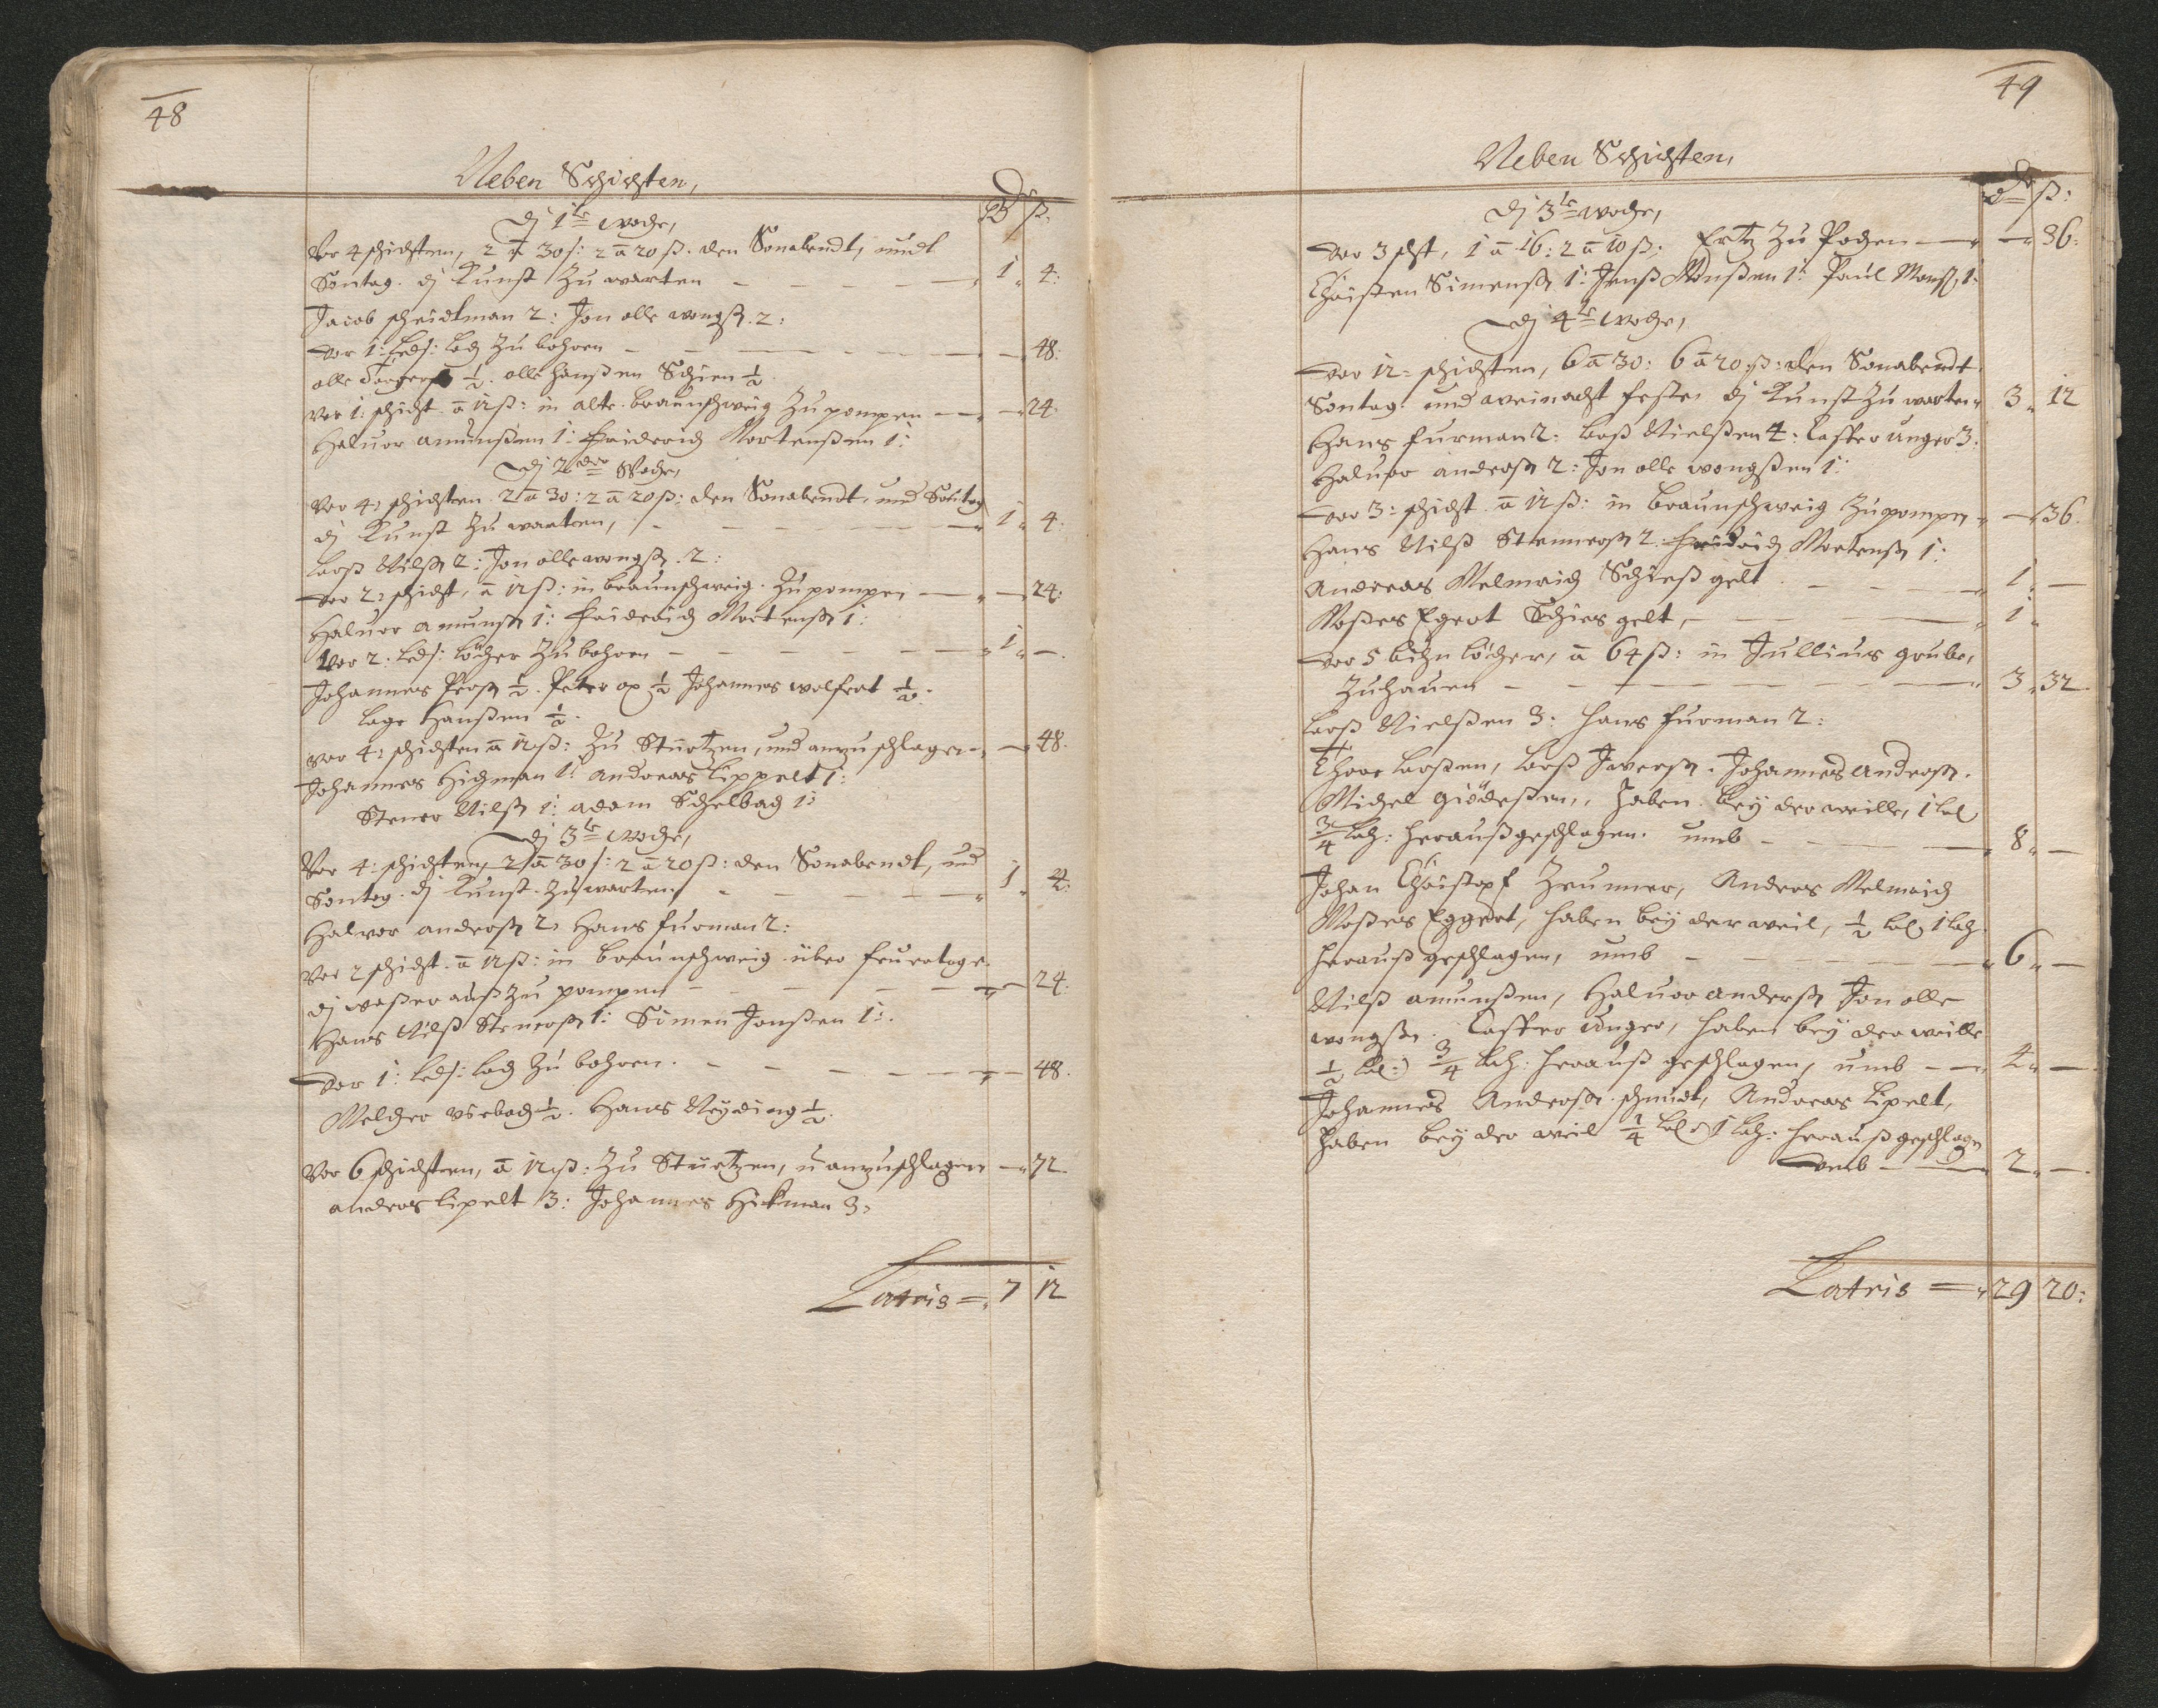 48
Neben Schichten,
Dj 1te woche, ß:
Vor 4 schichten, 2 a 30 ß: 2 a 20 ß. den Sonabendt, undt
Sontag. dj Kunst Zu warten - - - - 1 „ 4:
Jacob scheidtman 2: Jon olle wongß. 2:
Vor 1: led: loch Zu bohren - - - - 48:
olle ½. olle hanßen Schien ½.
Vor 1: schicht. a 12 ß: in alte. braunschweig Zu pompen — 24
Haluor amunßen 1: Friderich Mortenßen 1:
Dj 2der Woche,
Vor 4: schichten. 2 a 30: 2 a 20 ß: den Sonabendt, und Sontag
dj Kunst Zu warten, - - - - 1 „ 4:
Larß Nilß 2: Jon olle wongß. 2:
Vor 2: schicht, a 12 ß: in braunschweig. Zu pompen — 24:
Haluor amunß 1: Friderich Mortenß 1:
Vor 2: led: löcher Zu bohren - - - - 1 „ —.
Johannes Perß ½. Peter op ½ Johannes wolfrat ½.
lage Hanßen ½.
Vor 4: schichten a 12 ß: Zu Stürtzen, und anzuschlagen — 48.
Johannes Hichman 1: andreas Lippelt 1:
Stener Nilß 1: adam Schelbach 1:
Dj 3te woche,
Vor 4: schichten, 2 a 30 ß: 2 a 20 ß: den Sonabendt, und
Sontag. dj Kunst. Zu warten - - - - 1 „ 4:
Halvor andersß 2: Hans furman 2:
Vor 2 schicht. a 12 ß: in braunschweig über feuertage.
dj waßer auß Zu pompen - - - - 24.
Hans Nilß Stenerß 1: Simen Jonßen 1:
Vor 1: led: loch Zu bohren. - - - - 48.
Melcher ½. Hans Neyding ½.
Vor 6 schichten, a 12 ß: Zu Stürtzen, u anzuschlagen — 72
andreas lipelt 3: Johannes Hickman 3:
Latris = „ 7 12
49
Neben Schichten,
ß:
Dj 3te woche,
Vor 3 scht, 1 a 16: 2 a 10 ß: Ertz Zu Pochen — 36:
Christen Simenß 1: Jenß Monßen 1: Paul Monß, 1:
Dj 4te woche,
Vor 12= schichten, 6 a 30: 6 a 20: ß: den Sonabendt
Sontag. und weinacht festen dj Kunst Zu warten „ 3 „ 12
Hans furman 2: Larß Nielßen 4: Casper unger 3:
Haluor andersß 2: Jon olle wongßen 1:
Vor 3: schicht. a 12 ß: in braunschweig Zu pompen — 36.
Hans Nilß Stenersß 2. Fridrich Mortenß 1:
Andreas Melmrich Schieß gelt. - - - - 1: —
Moßes Egert Schies gelt, - - - - 1 „
Vor 5 löcher, a 64 ß: in Jullius grube,
Zu hauen - - - - 3 „ 32
Larß Nielßen 3: hans furman 2:
Thore Larßen, Larß Jverß. Johannes andersß.
Michel giödeßen,, haben. bey der weille, 1
¾ lch: herauß geschlagen. umb - - - 8 „ —
Johan Christopf Zeumer, Andreas Melmrich
Moßes Eggert, haben bey der weil, ½ 1 lch.
herauß geschlagen, umb - - - - 6 „ —
Nilß amunßen, Haluor andersß Jon olle
wongß. Casper Unger, haben bey der weille
½ ¾ lch: herauß geschlagen, umb - - 4 „ —
Johannes Andersß. schmidt, Andreas Lipelt,
haben bey der weil ¼ 1 lch: herauß geschlagen
Vmb — 2 „ —
Latris = „ 29 20: